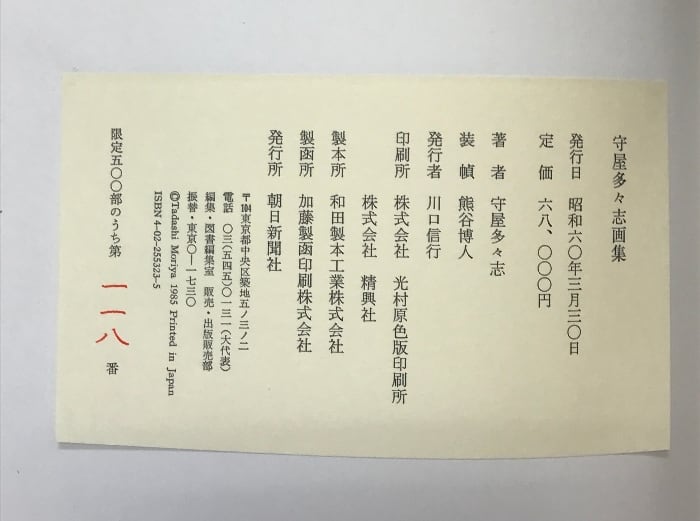 守屋多々志画集
発行日 昭和六〇年三月三〇日
定価 六八、〇〇〇円
著者 守屋多々志
装幀 熊谷博人
発行者 川口信行
印刷所 株式会社 光村原色版印刷所
株式会社 精興社
製本所 和田製本工業株式会社
製函所 加藤製函印刷株式会社
発行所 朝日新聞社
〒104東京都中央区築地五ノ三ノ二
電話 〇三(五四五)〇一三一(大代表)
編集・図書編集室 販売・出版販売部
振替・東京〇―一七三〇
©Tadashi Moriya 1985 Printed in Japan
ISBN4-02-255323-5
限定五〇〇部のうち第 一一八 番